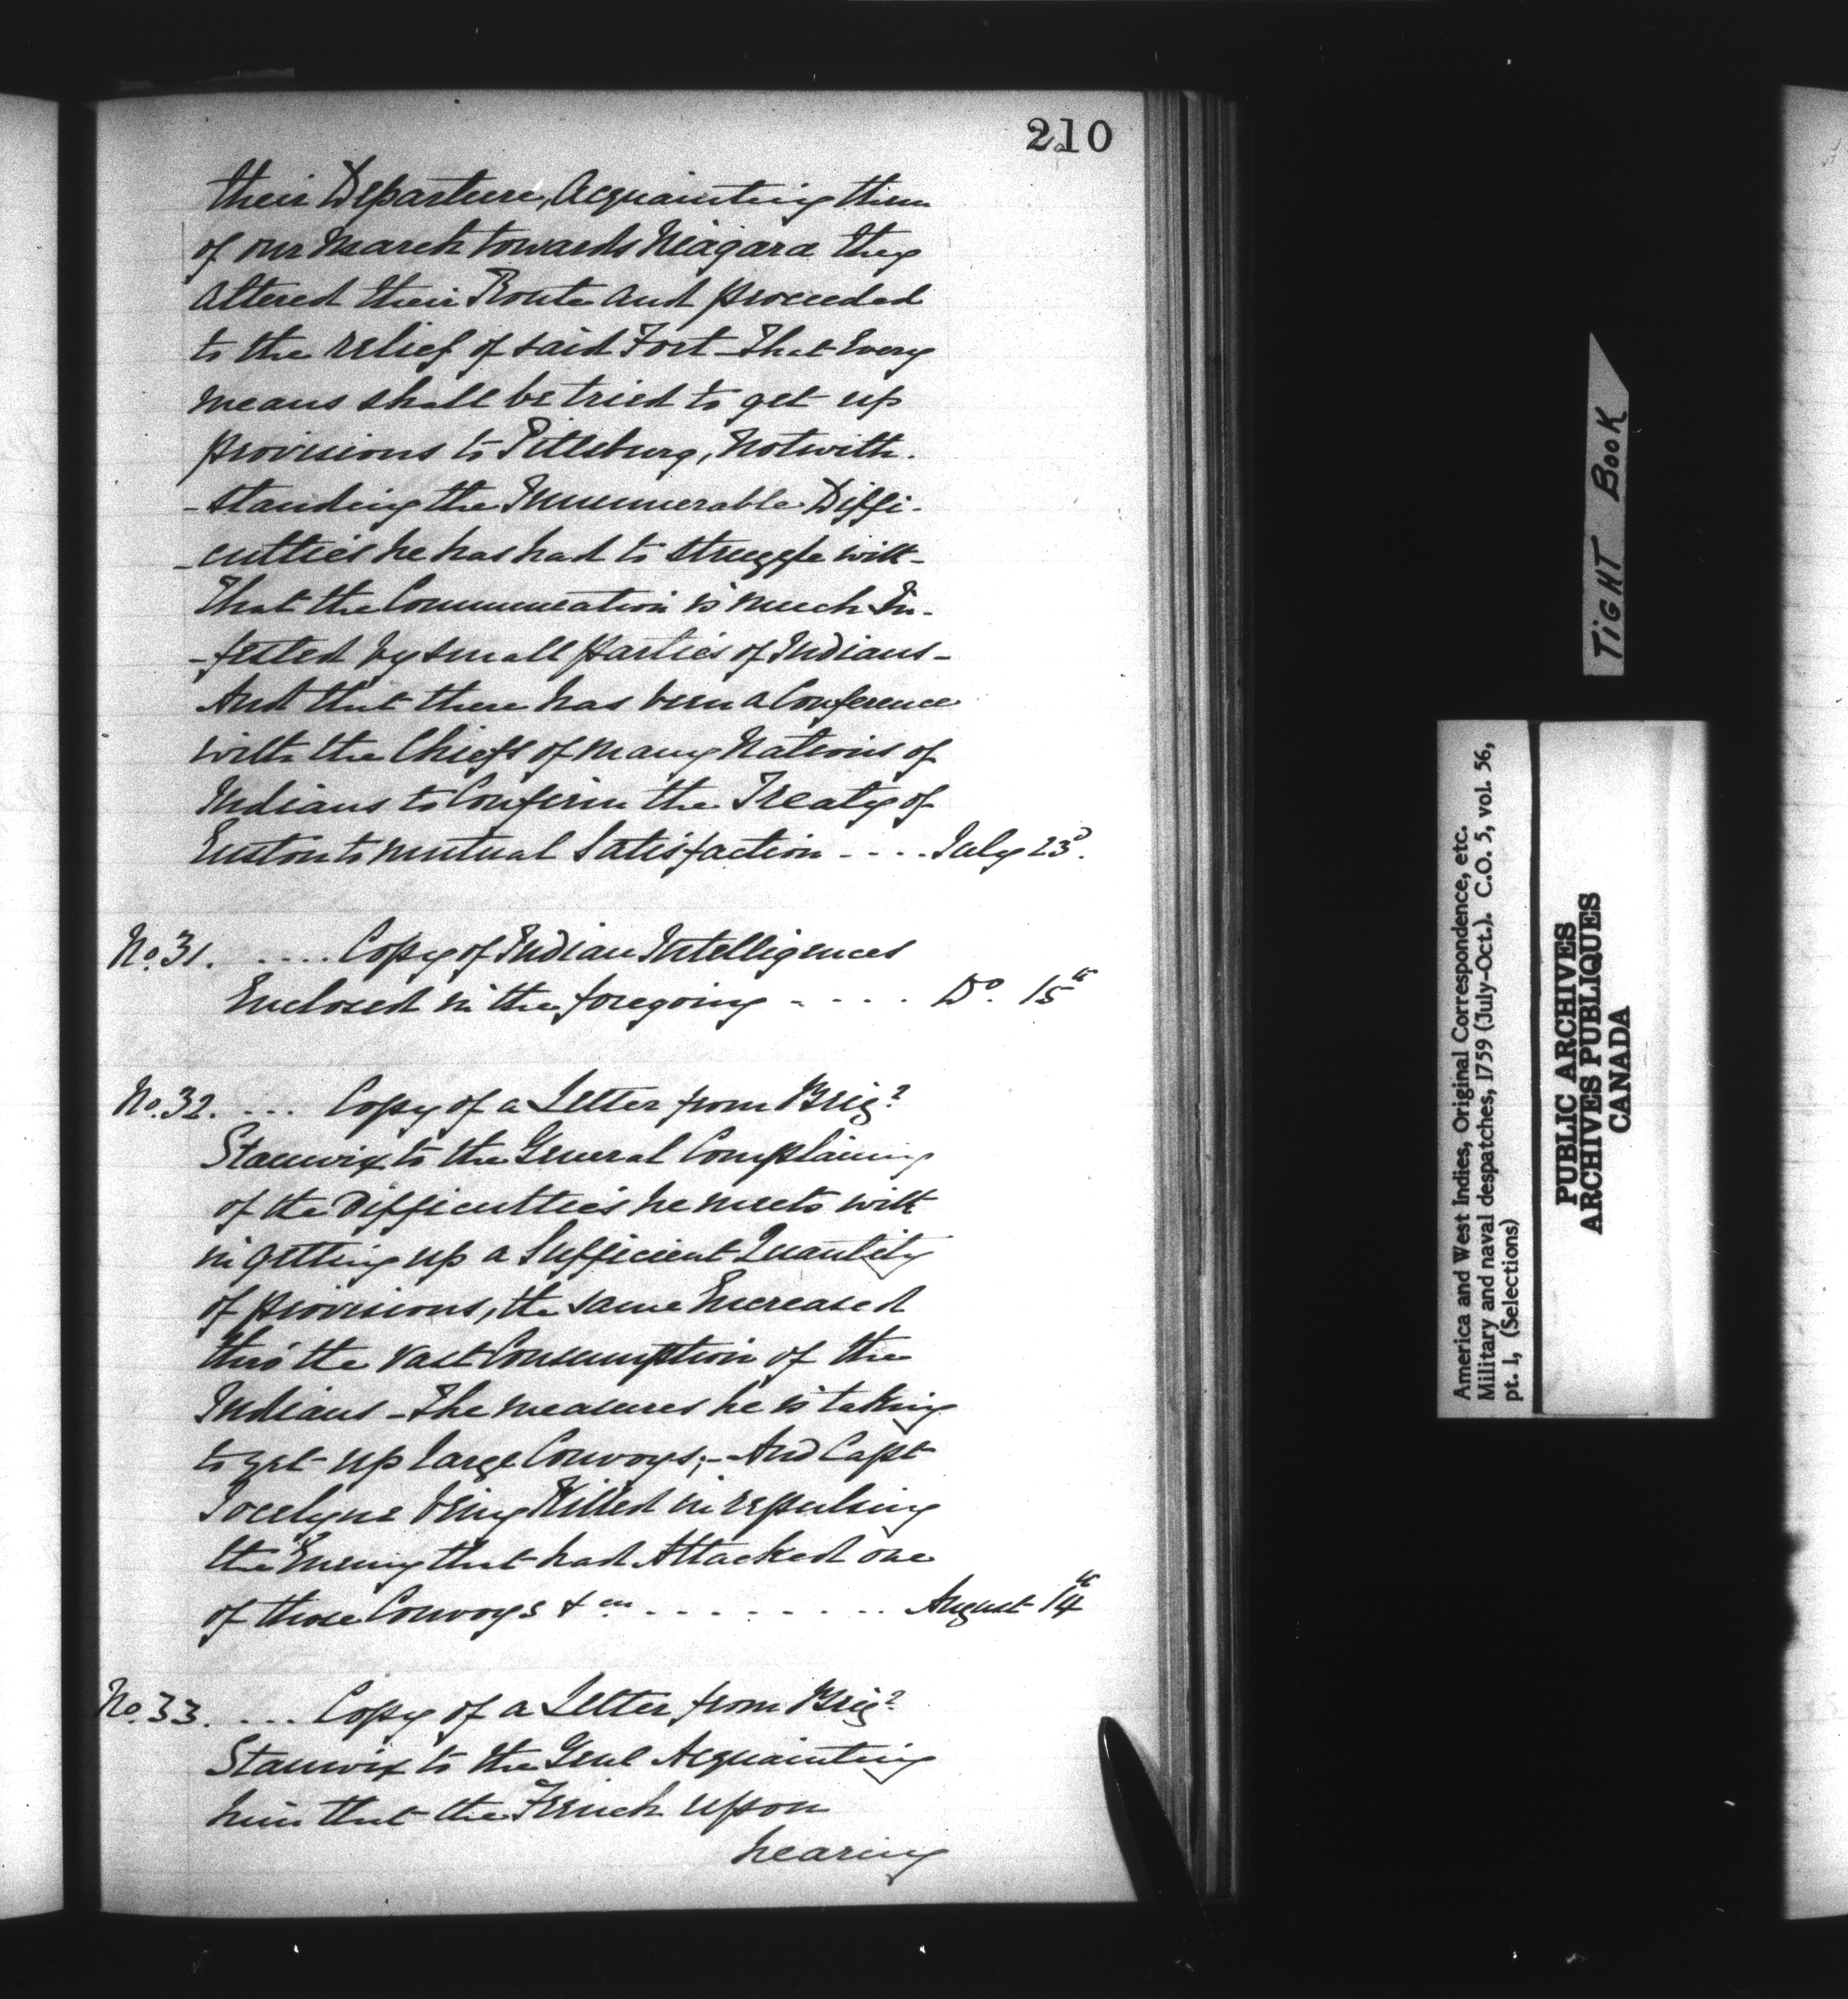 210
their Departure, Acquainting them
of our March towards Niagara they
altered their Route and proceeded
to the relief of said Fort - That Every
means shall be tried to get up
provisions to Pittsburg, Notwith-
-standing the Innumerable Diffi-
-culties he has had to struggle with -
That the Communication is much In-
-fested by small parties of Indians -
And that there has been a Conference
with the Chiefs of many Nations of
Indians to Confirm the Treaty of
Easton to mutual Satisfaction - - - - July 23d.
No. 31. . . . . . Copy of Indian Intelligences
Enclosed in the foregoing - - - - Do. 15th
No. 32. . . . Copy of a Letter from Brigr.
Stanwix to the General Complaining
of the Difficulties he meets with
in getting up a Sufficient Quantity
of provisions, the same Encreased
thro' the vast Consumption of the
Indians - The measures he is taking
to get up large Convoys; - And Capt
Jocelyne being Killed in repulsing
the Enemy that had Attacked one
of those Convoys &ca. . . . . . . . . August 14th
No. 33. . . . . Copy of a Letter from Brigr.
Stanwix to the Genl Acquainting
him that the French upon
hearing
TIGHT BOOK
America and West Indies, Original Correspondence, etc.
Military and naval despatches, 1759 (July-Oct.). C.O. 5, vol. 56,
pt. 1, (Selections)
PUBLIC ARCHIVES
ARCHIVES PUBLIQUES
CANADA